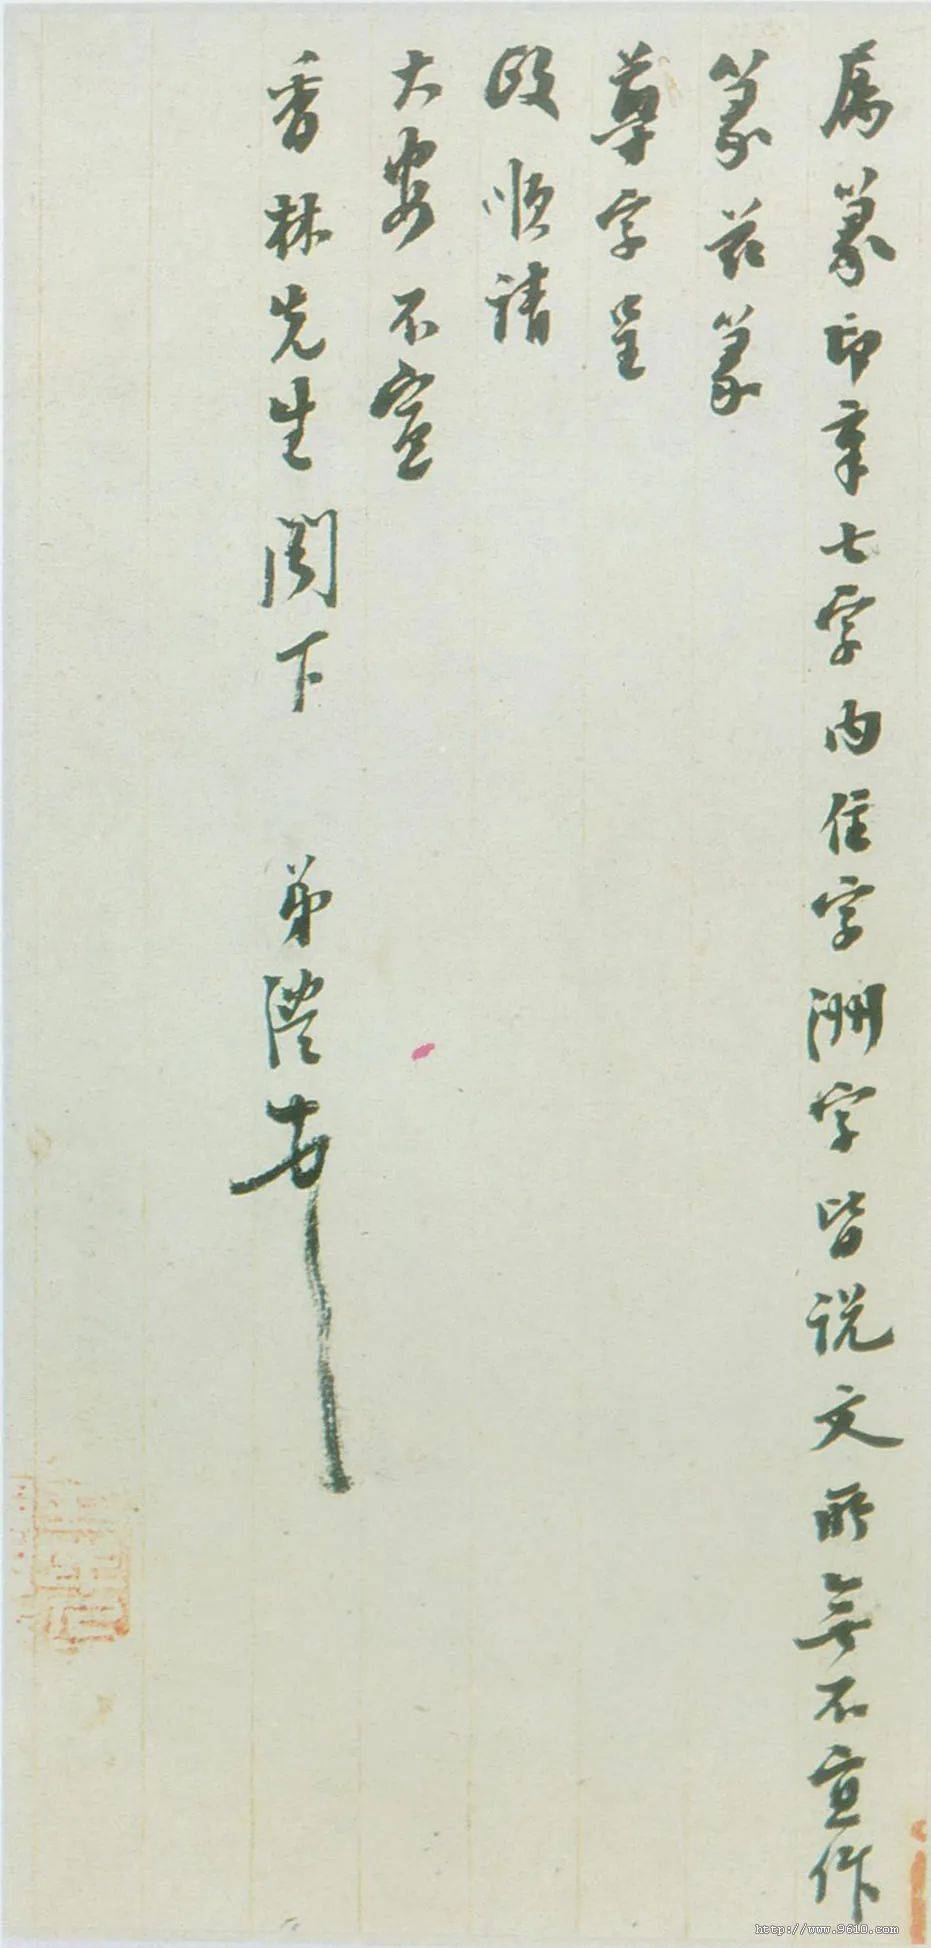 属篆印章七字内住字洲字皆说文所無不宜作
篆兹篆
尊字呈
政順請
大安不宣
香林先生閣下 弟澧方
http://www.9610.com